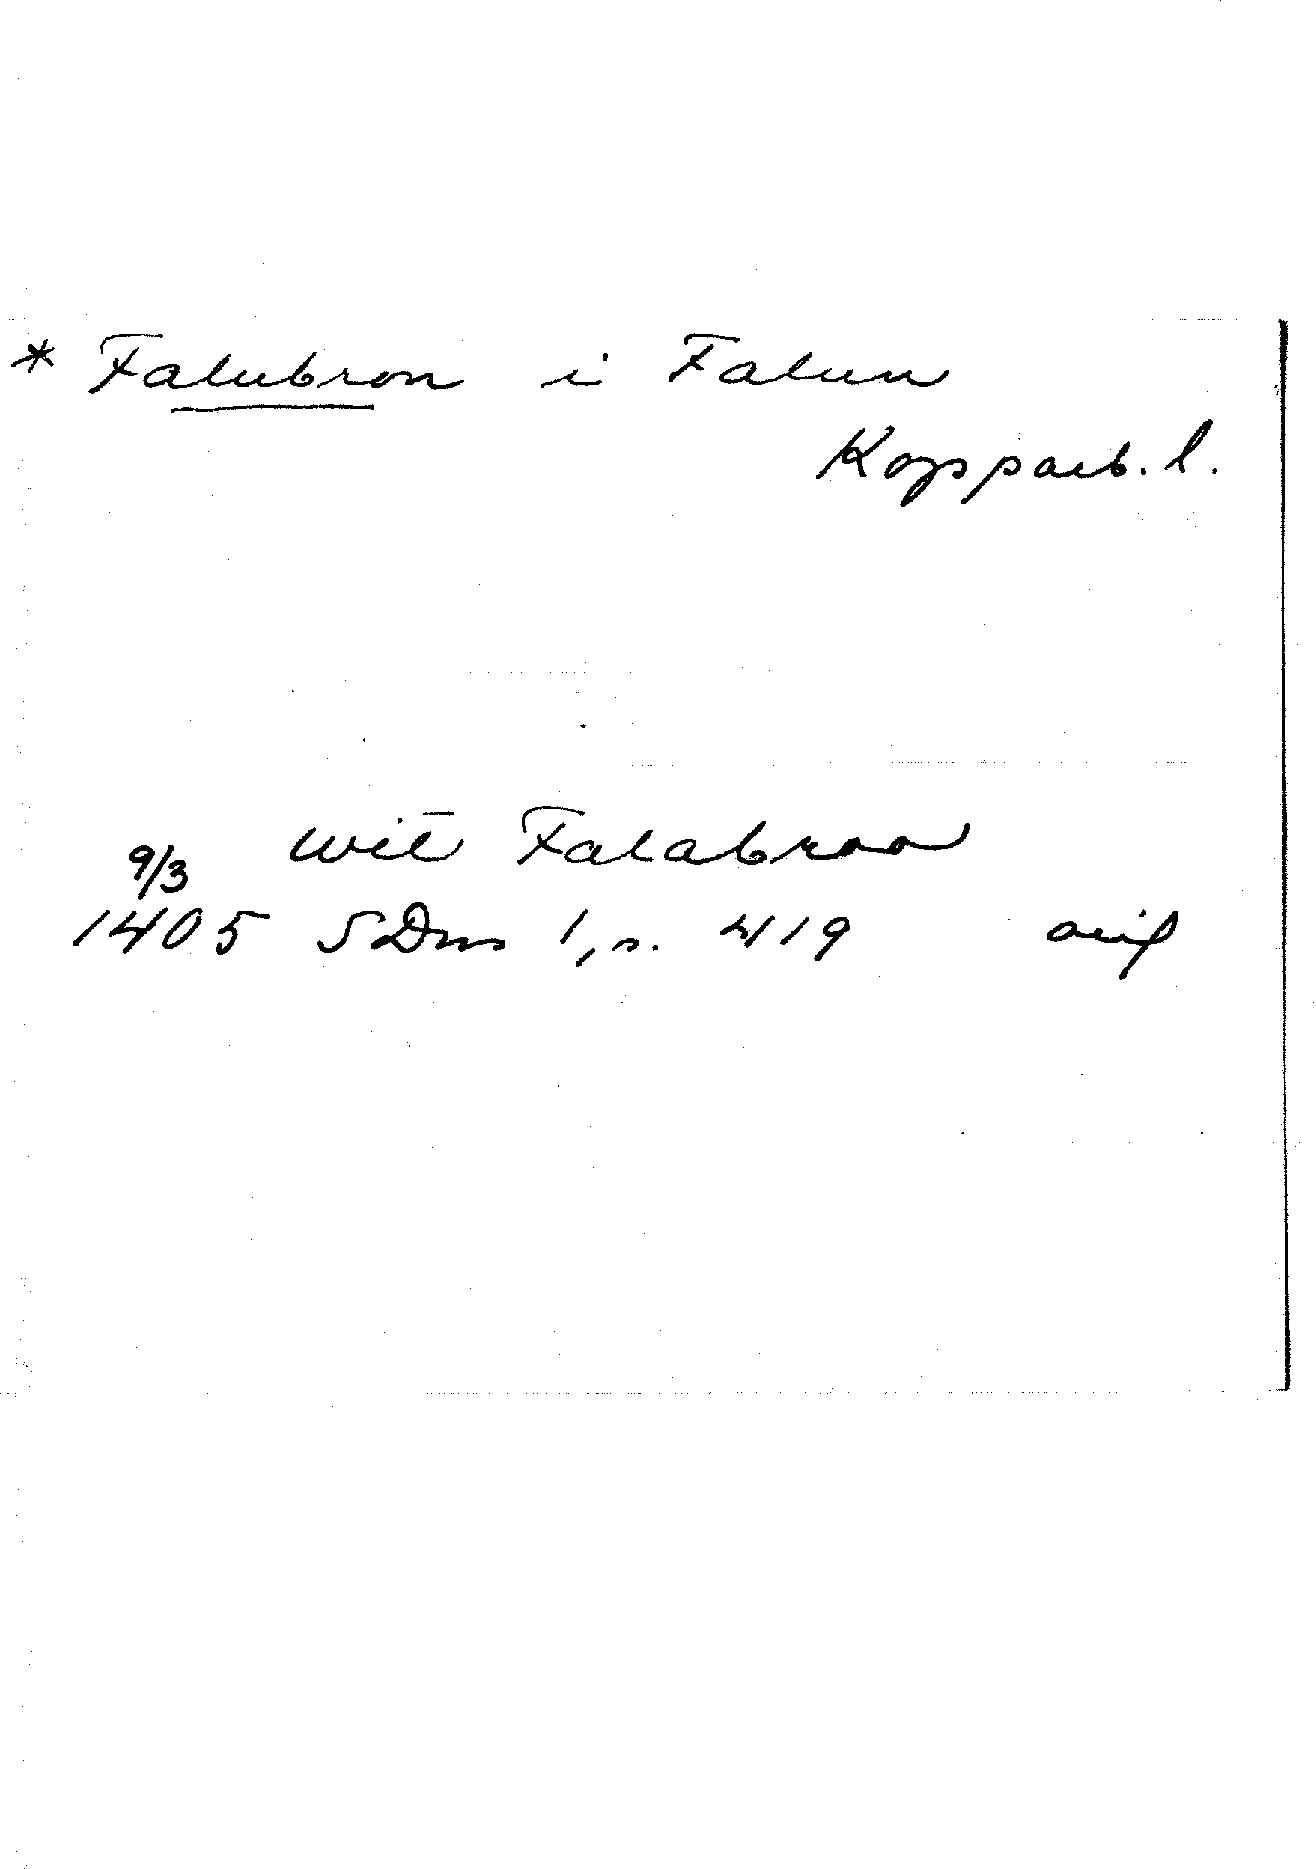 * Falubron i Falun
Kopparb. l.
wit Falabroo
9/3
1405 SDns 1, s. 419 avsk